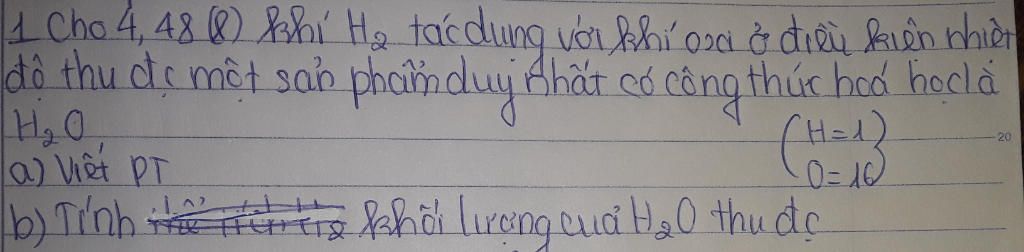 1 Cho 4,48 (l) khí H2 tác dụng với khí oxi ở điều kiện nhiệt
độ thu đc một sản phẩm duy nhất có công thức hoá học là
H2O (H=1
20
a) Viết PT O=16)
b) Tính khối lượng của H2O thu đc